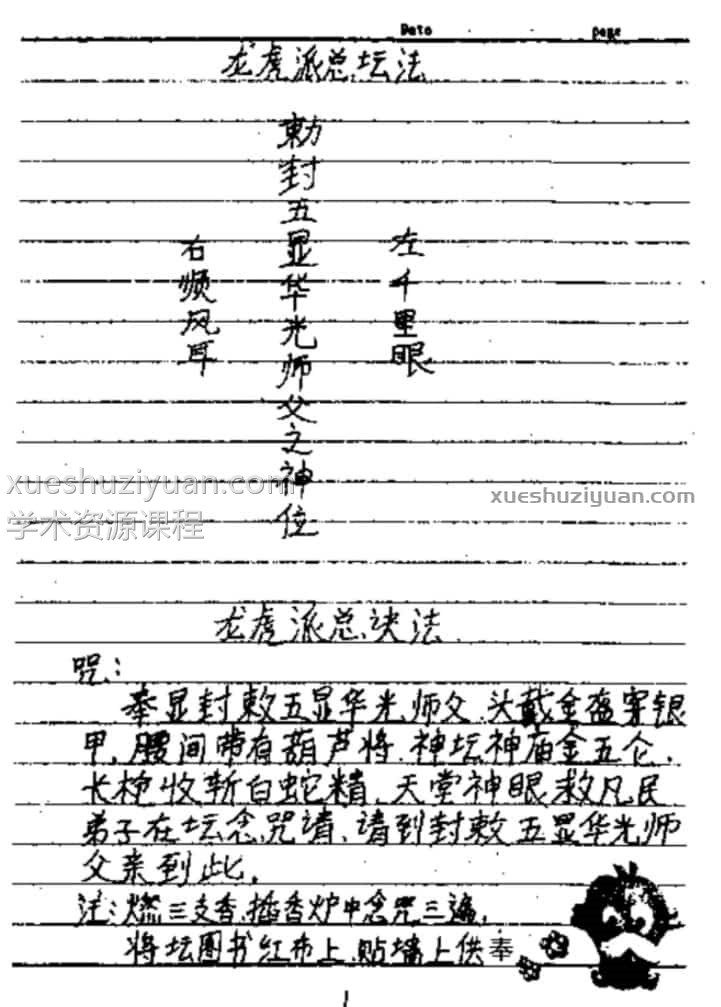 Date page
龙虎派总坛法
敕封五显华光师父之神位
左千里眼
右顺风耳
xueshuziyuan.com
学术资源课程
xueshuziyuan.com
龙虎派总诀法
咒:
奉显封敕五显华光师父,头戴金盔穿银
甲,腰间带有葫芦将,神坛神庙金五仑,
长枪收斩白蛇精,天堂神眼救凡民
弟子在坛念咒请,请到封敕五显华光师
父亲到此。
注:燃三支香,插香炉中念咒三遍,
将坛图书红布上,贴墙上供奉
1